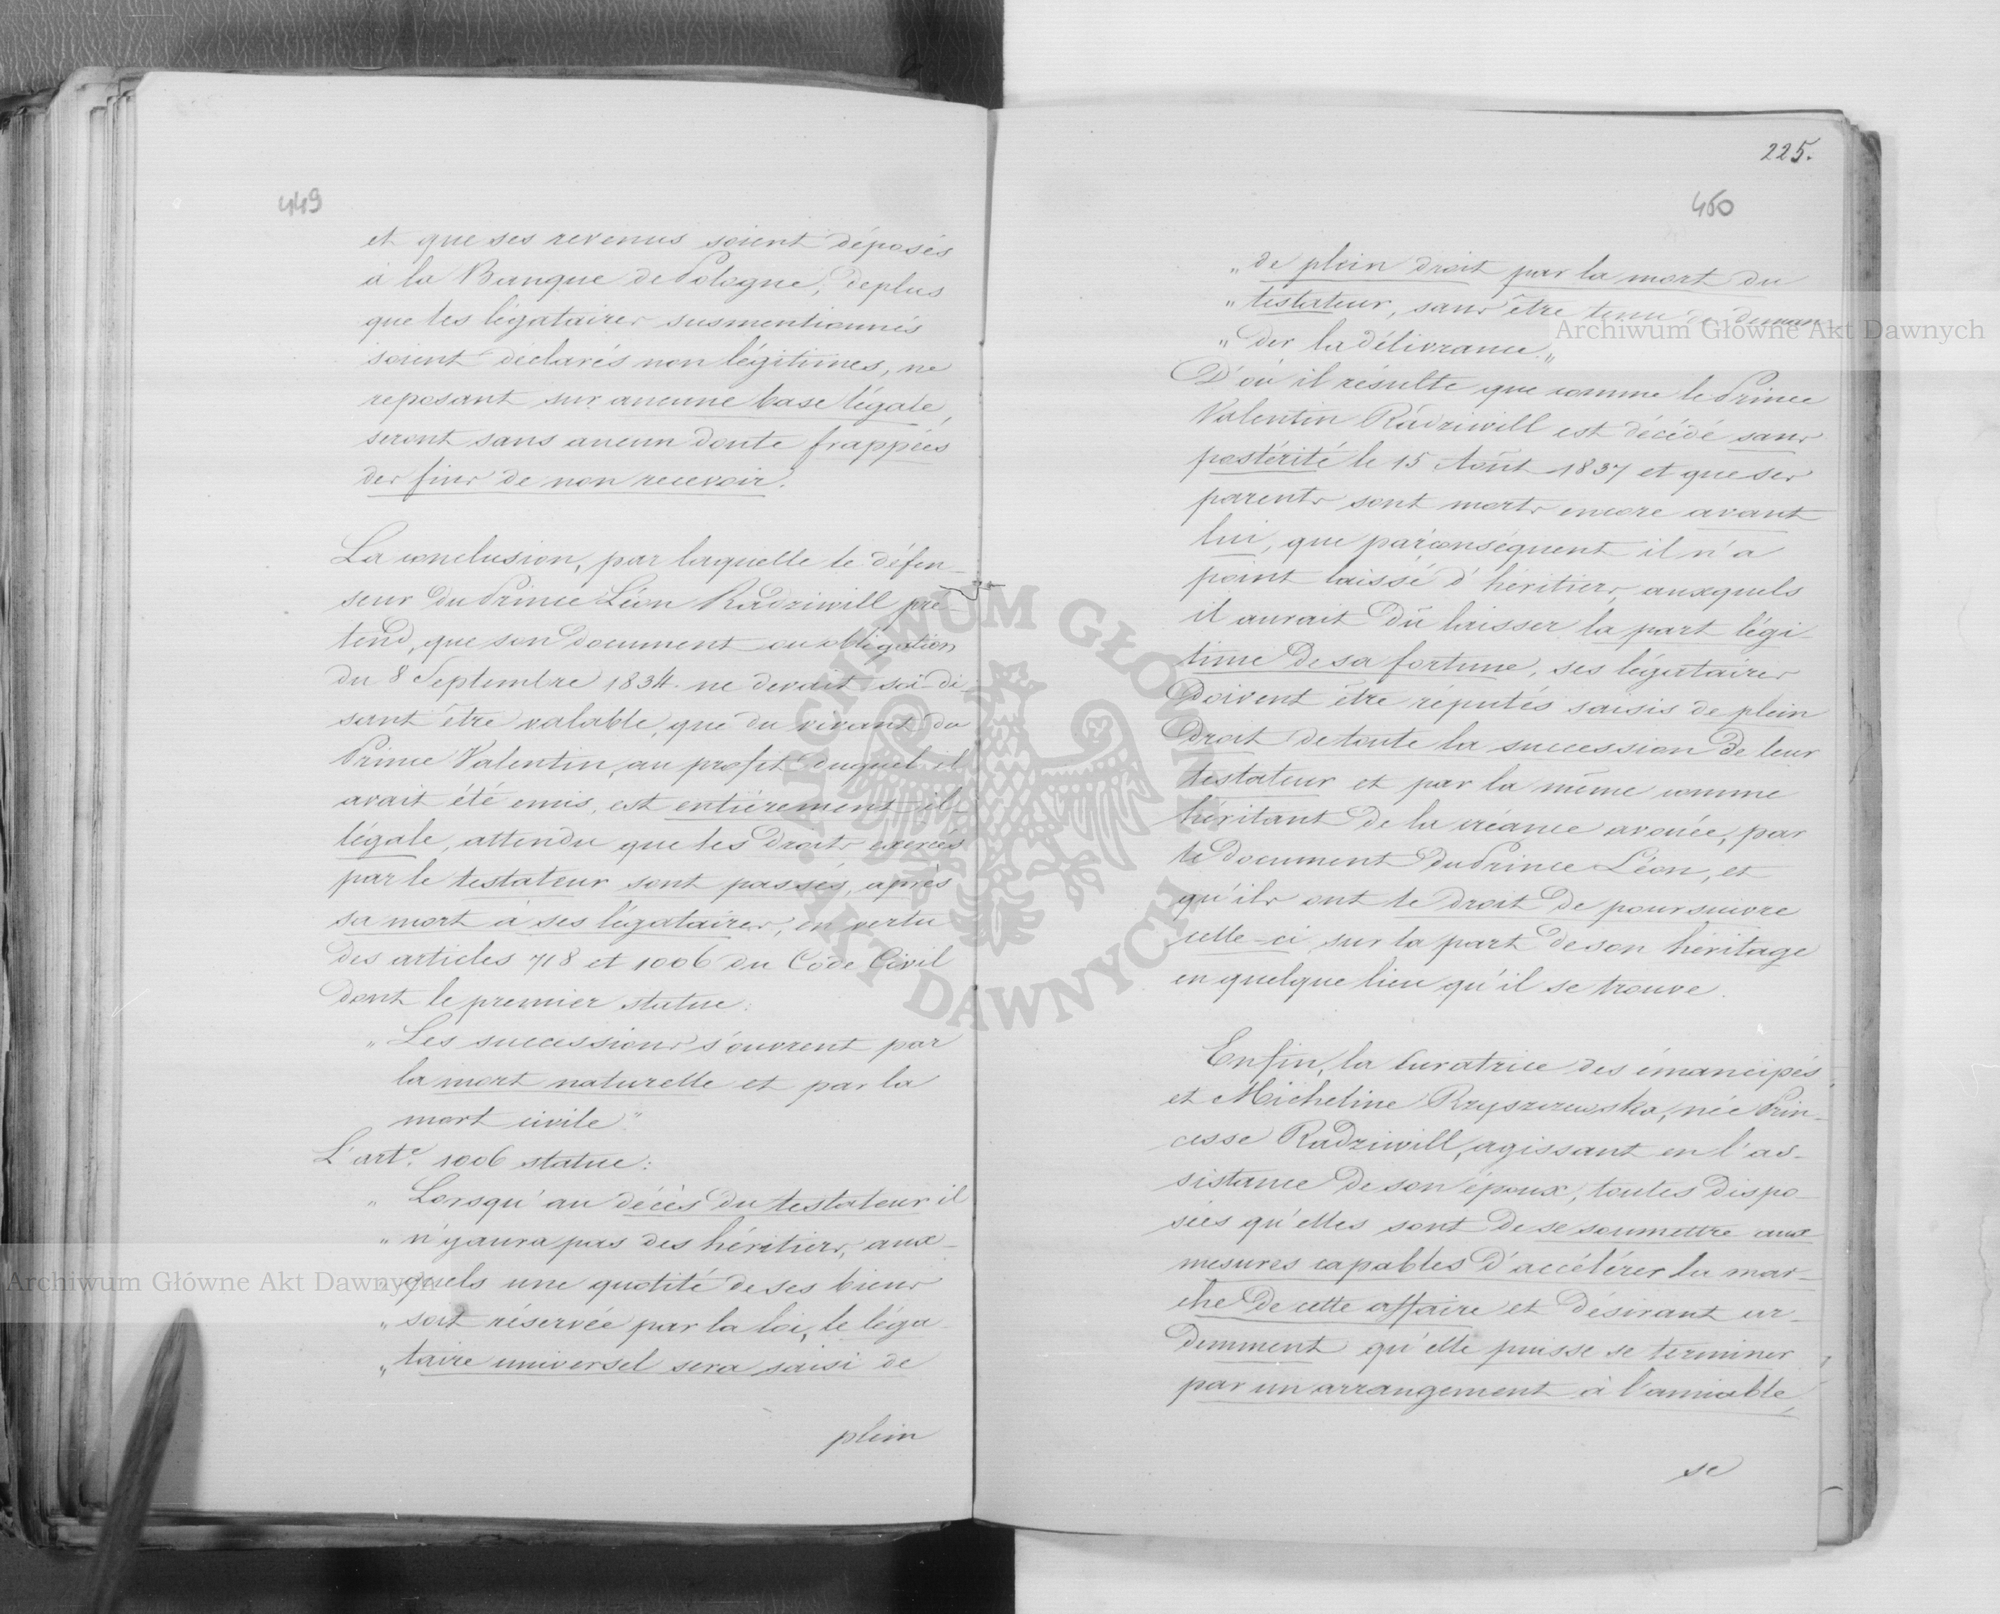 449
et que ses revenus soient déposés
à la Banque de Pologne, deplus
que les légataires susmentionnés
soient déclarés non légitimes, ne
reposant sur aucune base légale,
seront sans aucun doute frappées
des fins de non recevoir.
La conclusion, par laquelle le défen-
seur du Prince Léon Radziwill pré-
tend, que son document ou obligation
du 8 Septembre 1834 ne devait soi-di-
sant être valable, que du vivant du
Prince Valentin, au profit duquel il
avait été emis, est entièrement il-
légale, attendu que les Droits exercés
par le testateur sont passés, après
sa mort à ses légataires, en vertu
des articles 718 et 1006 du Code Civil
dont le premier statue:
„Les successions s'ouvrent par
la mort naturelle et par la
mort civile"
L'art.e 1006 statue:
„Lorsqu'au décès du testateur il
„n'yaura pas des héritiers, aux-
„quels une quotité de ses biens
„soit réservée par la loi, le léga-
„taire universel sera saisi de
plein
225.
450
„de plein droit par la mort du
„testateur, sans être tenu de deman
„der la délivrance„
D'où il résulte que comme le Prince
Valentin Radziwill est décédé sans
postérité le 15 Août 1837 et que ses
parents sont morts encore avant
lui, que parconséquent il n'a
point laissé d'héritiers, auxquels
il aurait dû laisser la part légi-
time de sa fortune, ses légataires
doivent être réputés saisis de plein
droit de toute la succession de leur
testateur et par la même comme
héritant de la créance avouée, par
le document du Prince Léon, et
qu'ils ont le droit de poursuivre
celle-ci sur la part de son héritage
en quelque lieu qu'il se trouve.
Enfin, la Curatrice des émancipés
et Micheline Rzyszczewska, née Prin-
cesse Radziwill, agissant en l'as-
sistance de son époux, toutes dispo-
sées qu'elles sont de se soumettre aux
mesures capables d'accélérer la mar-
che de cette affaire et désirant ar-
demment qu'elle puisse se terminer
par un arrangement à l'amiable,
se
Archiwum Główne Akt Dawnych
Archiwum Główne Akt Dawnych
ARCHIWUM GŁÓWNE AKT DAWNYCH